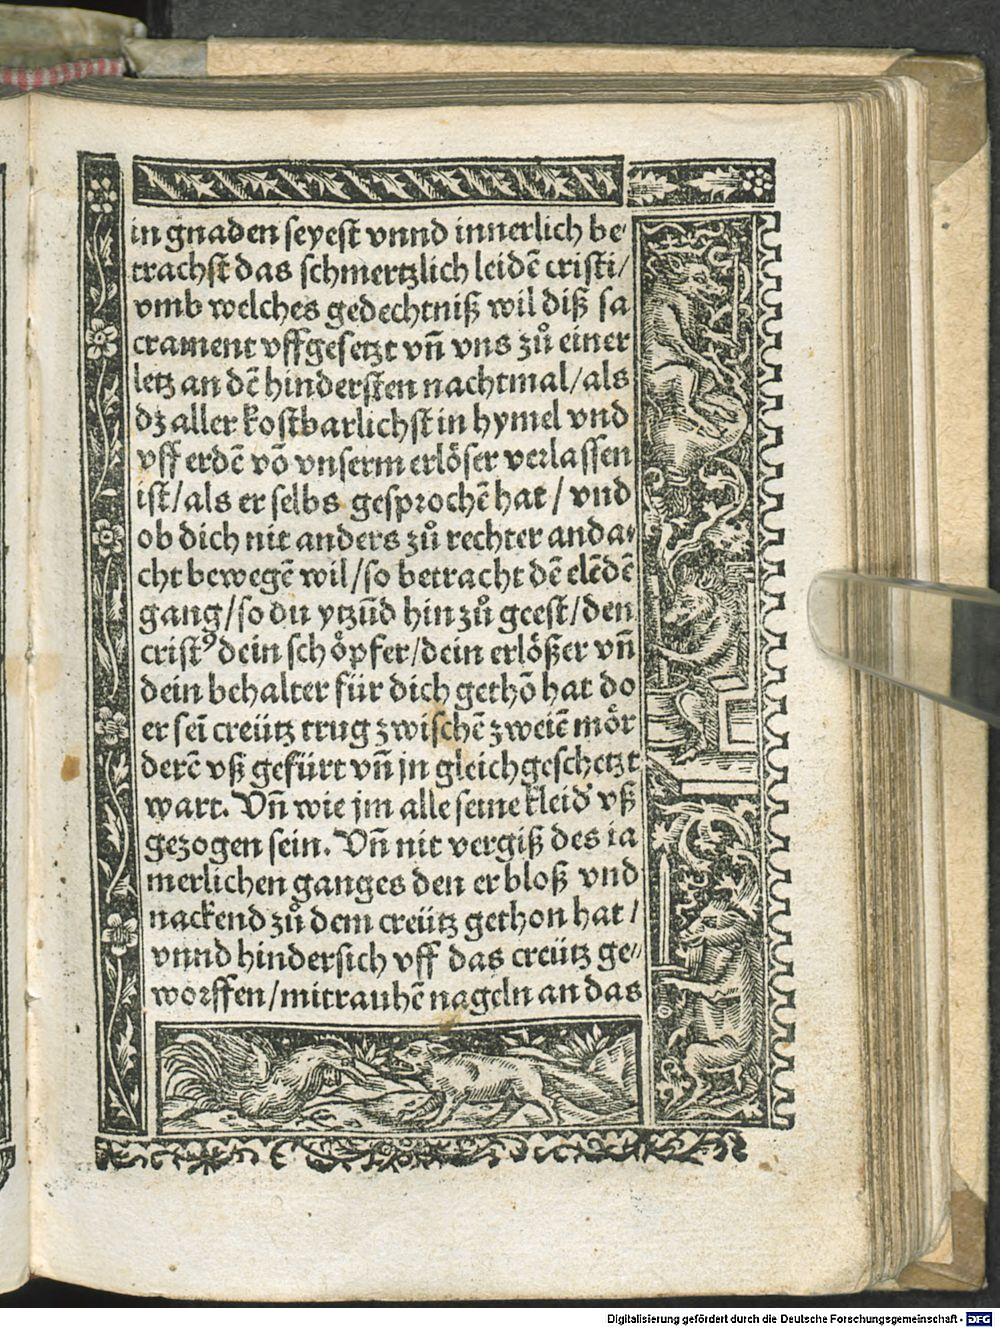 in gnaden seyest vnnd innerlich be⸗
trachst das schmertzlich leidē cristi/
vmb welches gedechtniß wil diß sa
crament vffgesetzt vñ vns zů einer
letz an dē hindersten nachtmal/als
dz aller kostbarlichst in hymel vnd
vff erdē vō vnserm erlöser verlassen
ist/als er selbs gesprochē hat/vnd
ob dich nit anders zů rechter anda⸗
cht bewegē wil/so betracht dē elēdē
gang/so du ytzūd hin zů geest/den
cristꝰ dein schöpfer/dein erlößer vñ
dein behalter für dich gethō hat do
er seī creütz trug zwischē zweiē mör
derē vß gefürt vñ jn gleichgeschetzt
wart. Vñ wie jm alle seine kleid' vß
gezogen sein. Vñ nit vergiß des ia
merlichen ganges den er bloß vnd
nackend zů dem creütz gethon hat/
vnnd hindersich vff das creütz ge⸗
worffen/mit rauhē nageln an das
Digitalisierung gefördert durch die Deutsche Forschungsgemeinschaft - DFG